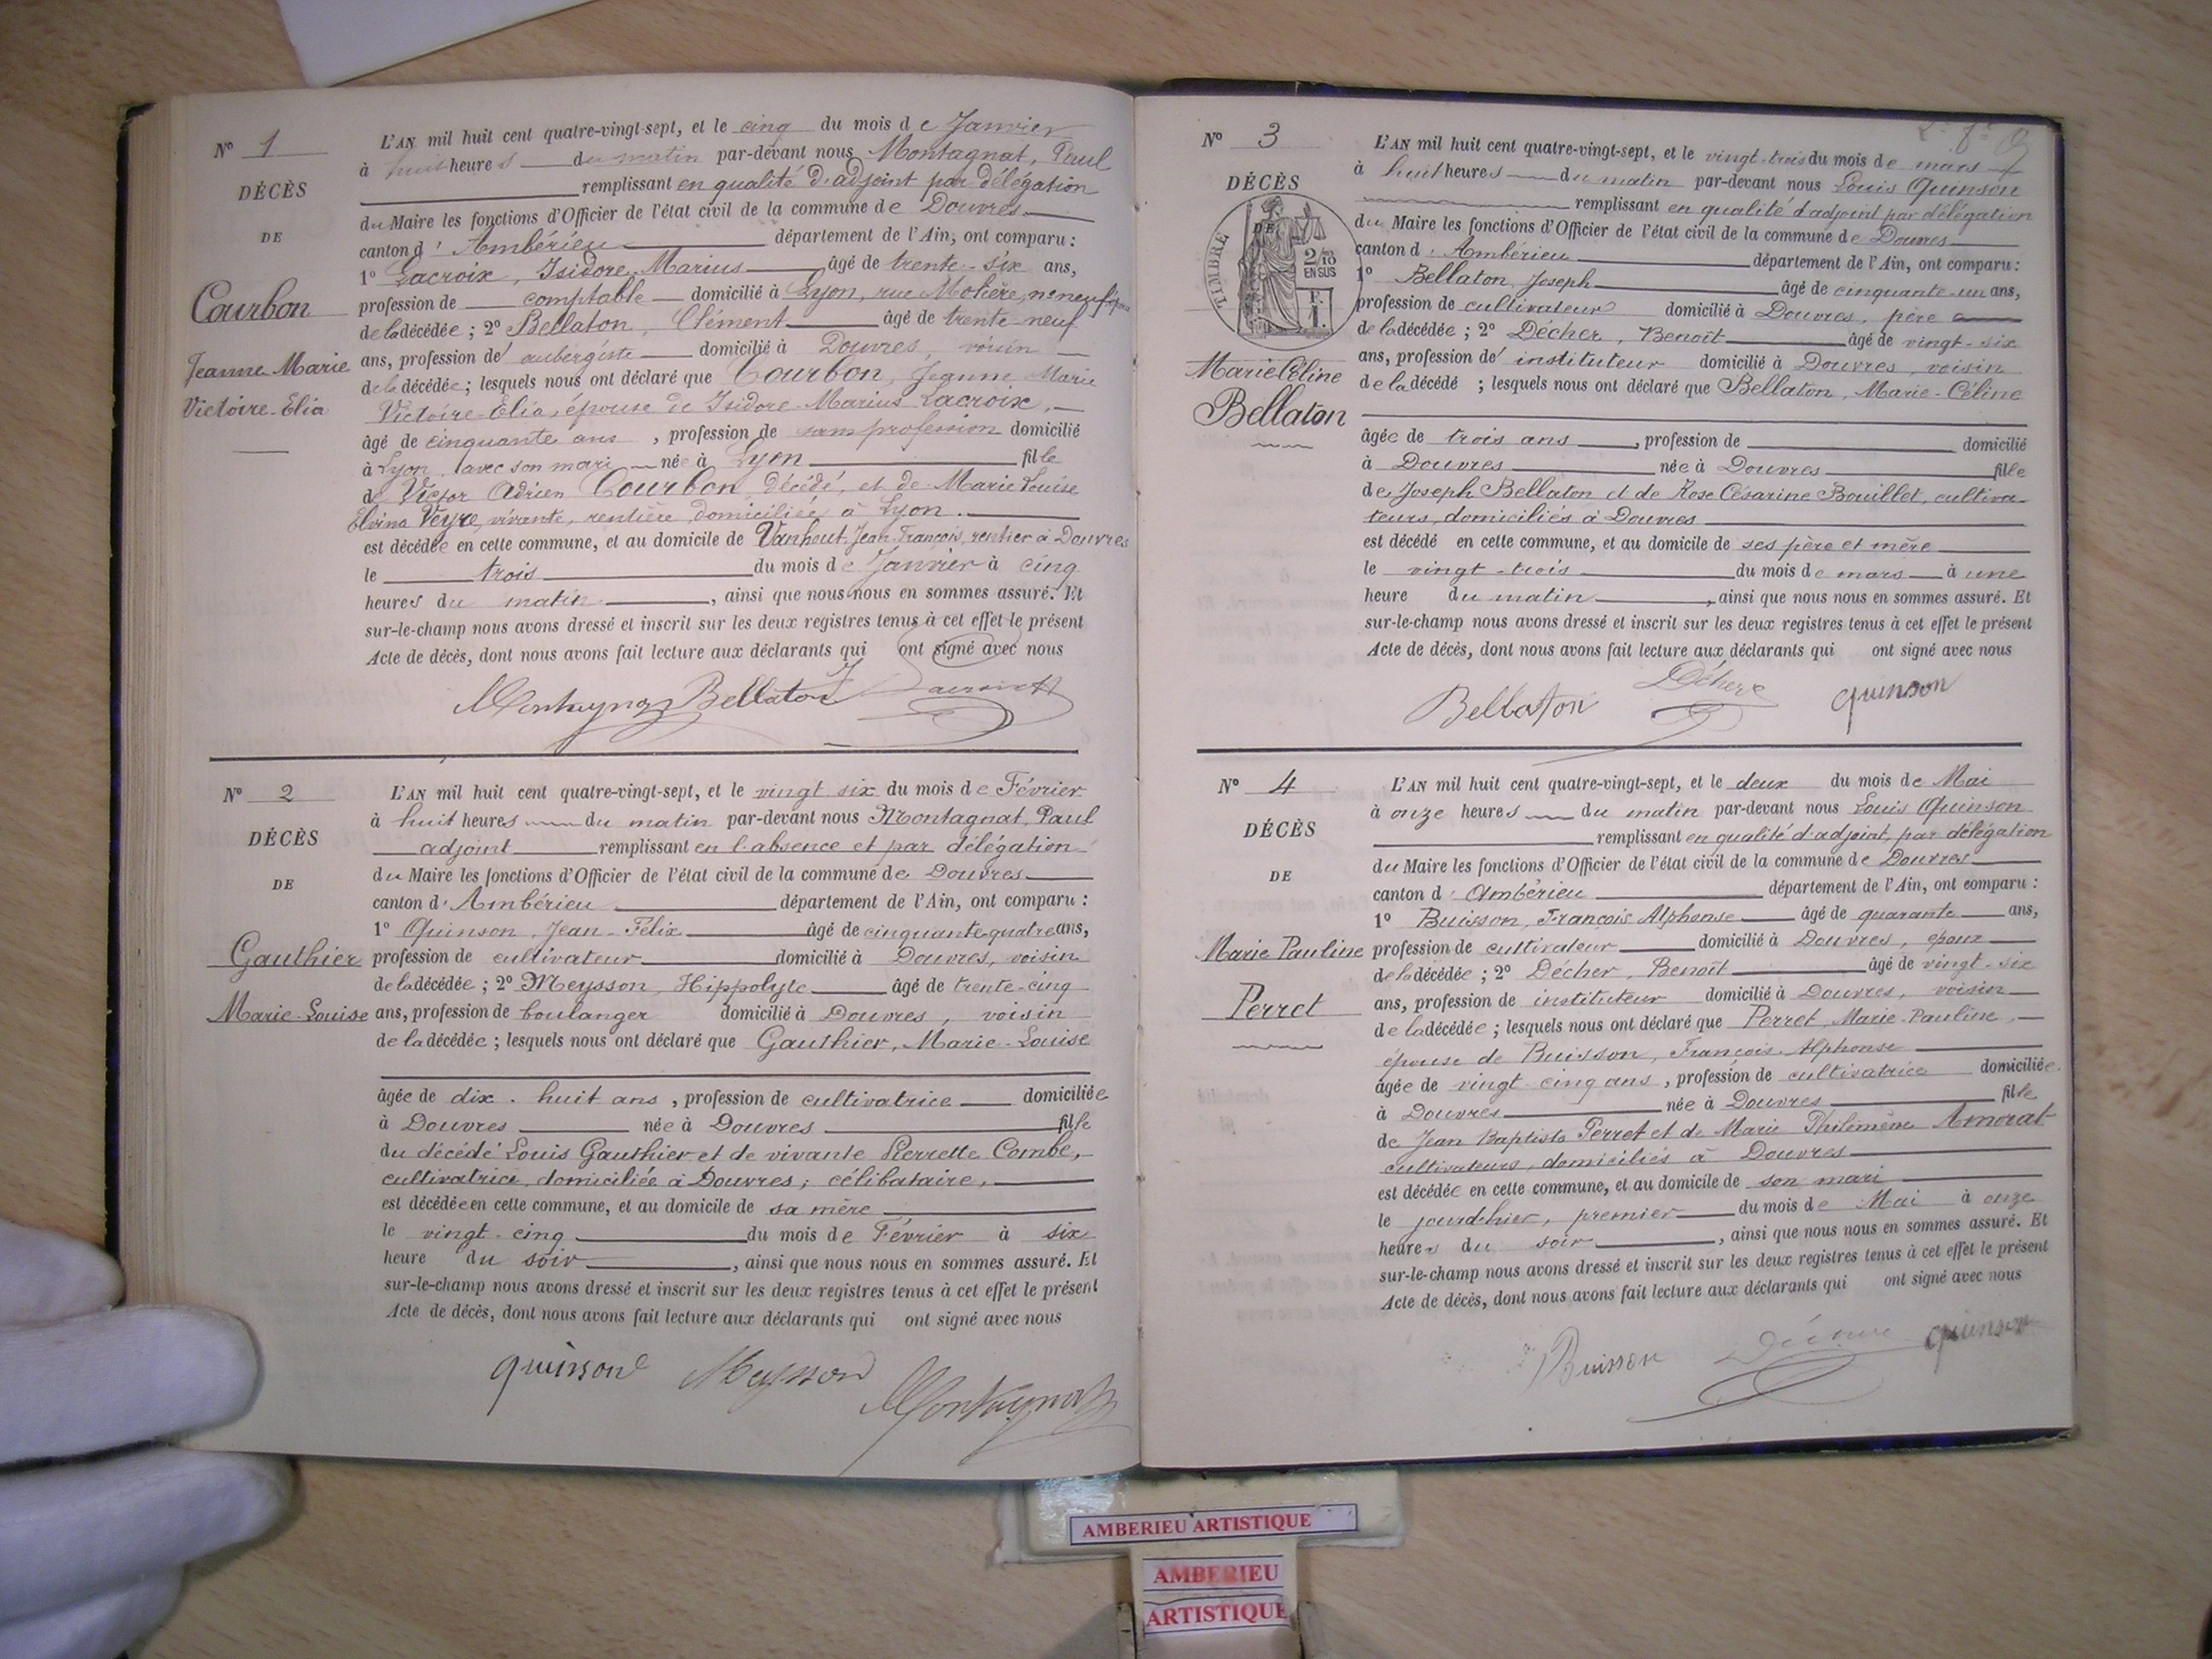 N° 1
DÉCÈS
DE
Courbon
Jeanne Marie
Victoire-Elia
L'AN mil huit cent quatre-vingt-sept, et le cinq du mois de Janvier
à huit heures du matin par-devant nous Montagnat, Paul
remplissant en qualité d'adjoint par délégation
du Maire les fonctions d'Officier de l'état civil de la commune de Douvres
canton d'Ambérieu département de l'Ain, ont comparu :
1° Lacroix, Isidore Marius âgé de trente-six ans,
profession de comptable domicilié à Lyon, rue Molière, n° neuf
de la décédée ; 2° Bellaton, Clément âgé de trente-neuf
ans, profession de aubergiste domicilié à Douvres, voisin
de la décédée ; lesquels nous ont déclaré que Courbon, Jeanne Marie
Victoire-Elia, épouse de Isidore-Marius Lacroix,
âgé de cinquante ans, profession de sans profession domicilié
à Lyon avec son mari née à Lyon fille
de Victor Adrien Courbon, décédé, et de Marie Louise
Elvina Veyre, vivante, rentière, domiciliée à Lyon.
est décédée en cette commune, et au domicile de Vanhout Jean François, rentier à Douvres
le trois du mois de Janvier à cinq
heures du matin, ainsi que nous nous en sommes assuré. Et
sur-le-champ nous avons dressé et inscrit sur les deux registres tenus à cet effet le présent
Acte de décès, dont nous avons fait lecture aux déclarants qui ont signé avec nous
Montagnat Bellaton Lacroix
N° 2
DÉCÈS
DE
Gauthier
Marie-Louise
L'AN mil huit cent quatre-vingt-sept, et le vingt six du mois de Février
à huit heures du matin par-devant nous Montagnat, Paul
adjoint remplissant en l'absence et par délégation
du Maire les fonctions d'Officier de l'état civil de la commune de Douvres
canton d'Ambérieu département de l'Ain, ont comparu :
1° Quinson, Jean-Félix âgé de cinquante-quatre ans,
profession de cultivateur domicilié à Douvres, voisin
de la décédée ; 2° Meysson, Hippolyte âgé de trente-cinq
ans, profession de boulanger domicilié à Douvres, voisin
de la décédée ; lesquels nous ont déclaré que Gauthier, Marie-Louise
âgée de dix-huit ans, profession de cultivatrice domiciliée
à Douvres née à Douvres fille
du décédé Louis Gauthier et de vivante Pierrette Combe,
cultivatrice, domiciliée à Douvres ; célibataire,
est décédée en cette commune, et au domicile de sa mère
le vingt-cinq du mois de Février à six
heure du soir, ainsi que nous nous en sommes assuré. Et
sur-le-champ nous avons dressé et inscrit sur les deux registres tenus à cet effet le présent
Acte de décès, dont nous avons fait lecture aux déclarants qui ont signé avec nous
quinson Meysson Montagnat
N° 3
DÉCÈS
DE
TIMBRE
2/10
EN SUS
F.
1.
Marie Céline
Bellaton
L'AN mil huit cent quatre-vingt-sept, et le vingt-trois du mois de mars
à huit heures du matin par-devant nous Louis Quinson
remplissant en qualité d'adjoint par délégation
du Maire les fonctions d'Officier de l'état civil de la commune de Douvres
canton d'Ambérieu département de l'Ain, ont comparu :
1° Bellaton, Joseph âgé de cinquante-un ans,
profession de cultivateur domicilié à Douvres, père
de la décédée ; 2° Décher, Benoît âgé de vingt-six
ans, profession de instituteur domicilié à Douvres, voisin
de la décédé ; lesquels nous ont déclaré que Bellaton, Marie-Céline
âgée de trois ans, profession de domicilié
à Douvres née à Douvres fille
de Joseph Bellaton et de Rose Césarine Bouillet, cultiva-
teurs, domiciliés à Douvres
est décédé en cette commune, et au domicile de ses père et mère
le vingt-trois du mois de mars à une
heure du matin, ainsi que nous nous en sommes assuré. Et
sur-le-champ nous avons dressé et inscrit sur les deux registres tenus à cet effet le présent
Acte de décès, dont nous avons fait lecture aux déclarants qui ont signé avec nous
Bellaton Décher quinson
N° 4
DÉCÈS
DE
Marie Pauline
Perret
L'AN mil huit cent quatre-vingt-sept, et le deux du mois de Mai
à onze heures du matin par-devant nous Louis Quinson
remplissant en qualité d'adjoint, par délégation
du Maire les fonctions d'Officier de l'état civil de la commune de Douvres
canton d'Ambérieu département de l'Ain, ont comparu :
1° Buisson, François Alphonse âgé de quarante ans,
profession de cultivateur domicilié à Douvres, époux
de la décédée ; 2° Décher, Benoît âgé de vingt-six
ans, profession de instituteur domicilié à Douvres, voisin
de la décédée ; lesquels nous ont déclaré que Perret, Marie-Pauline,
épouse de Buisson, François-Alphonse
âgée de vingt cinq ans, profession de cultivatrice domiciliée
à Douvres née à Douvres fille
de Jean Baptiste Perret et de Marie Philomène Amorat
cultivateurs, domiciliés à Douvres
est décédée en cette commune, et au domicile de son mari
le jour d'hier, premier du mois de Mai à onze
heures du soir, ainsi que nous nous en sommes assuré. Et
sur-le-champ nous avons dressé et inscrit sur les deux registres tenus à cet effet le présent
Acte de décès, dont nous avons fait lecture aux déclarants qui ont signé avec nous
Buisson Décher quinson
AMBERIEU ARTISTIQUE
AMBERIEU
ARTISTIQUE